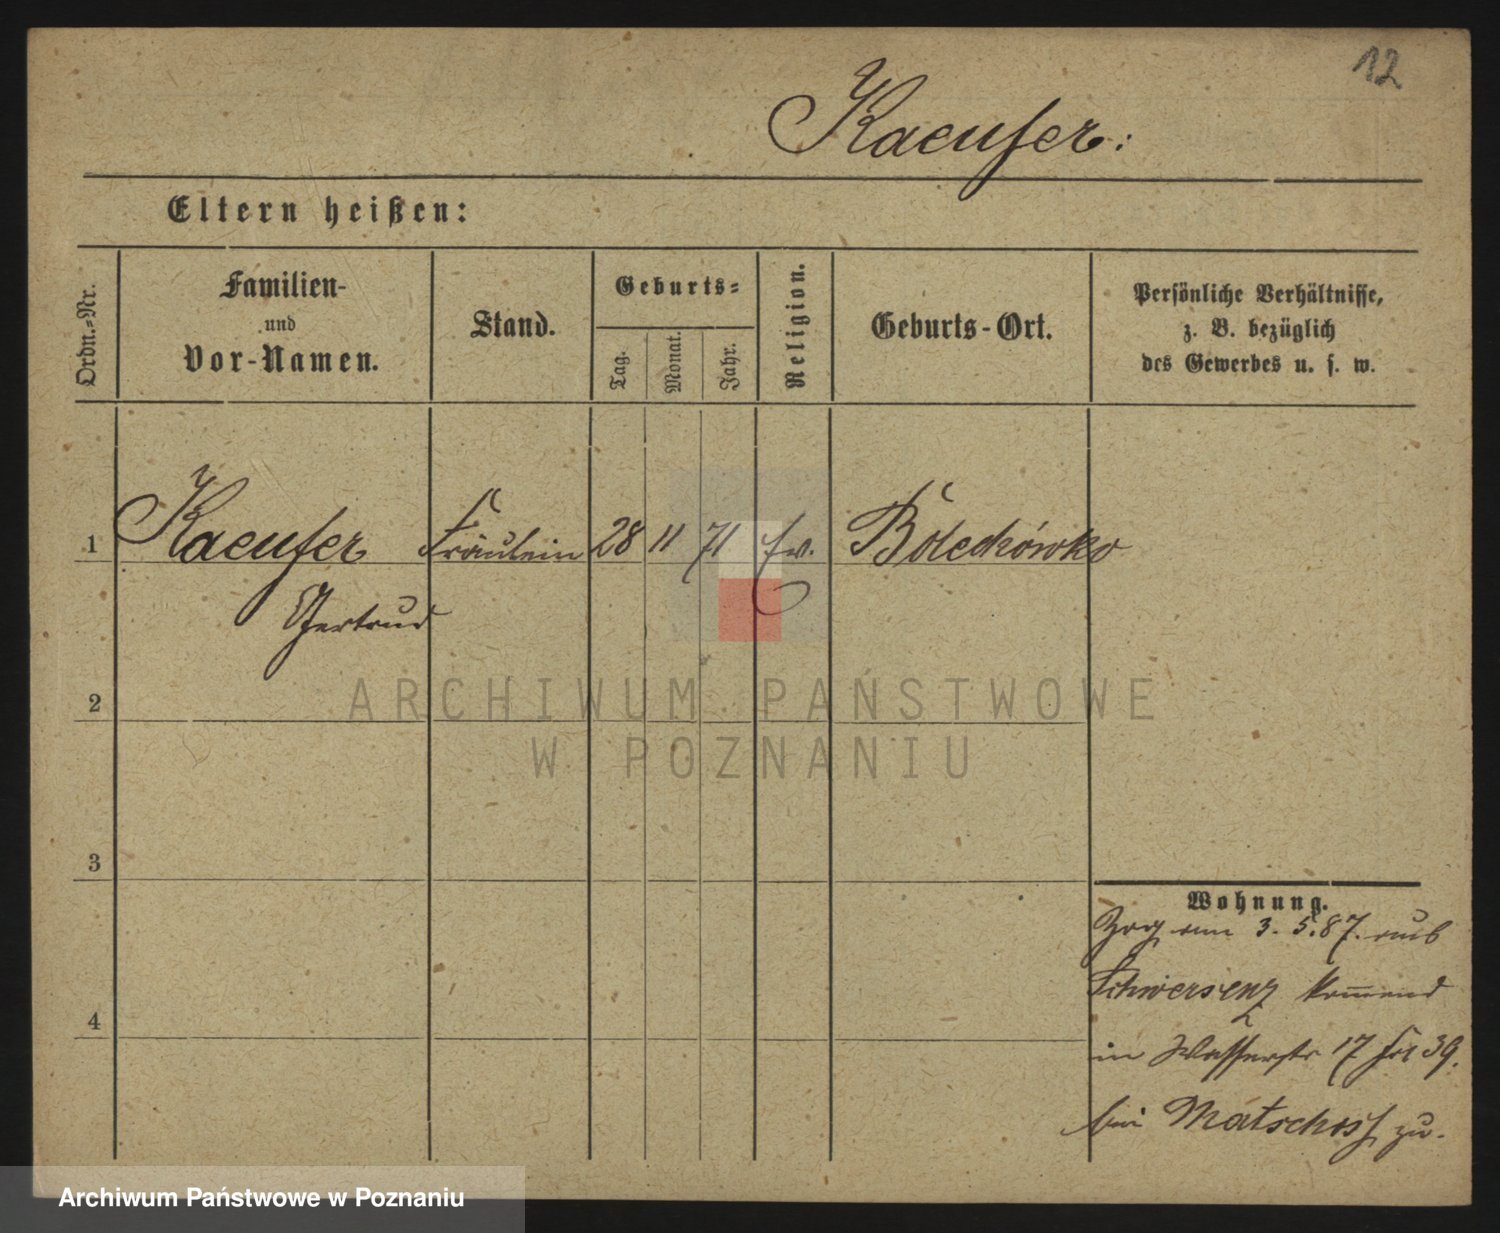 12
Kaeufer:
Eltern heißen:
Ordn.-Nr.
Familien-
und
Vor-Namen.
Stand.
Geburts-
Tag.
Monat.
Jahr.
Religion.
Geburts-Ort.
Persönliche Verhältnisse,
z. B. bezüglich
des Gewerbes u. s. w.
1 Kaeufer Fräulein 28 11 71 ev. Bolechówko
Gertrud
2
3
4
Wohnung.
Zog am 3. 5. 87. aus
Schwersenz kommend
in Wasserstr 17 39.
bei Matschoss zu.
ARCHIWUM PAŃSTWOWE
W POZNANIU
Archiwum Państwowe w Poznaniu